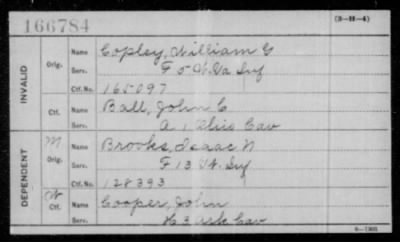 166784
(3-H-4)
INVALID
Orig.
Name Copley, William G
Serv. F 5 W.Va Inf
Ctf. No. 165097
Ctf.
Name Ball, John C
Serv. A 1 Ohio Cav
DEPENDENT
M
Orig.
Name Brooks, Isaac N
Serv. F 13 Vt. Inf
Ctf. No. 128393
Ctf.
Name Cooper, John
Serv. H 3 Ark Cav